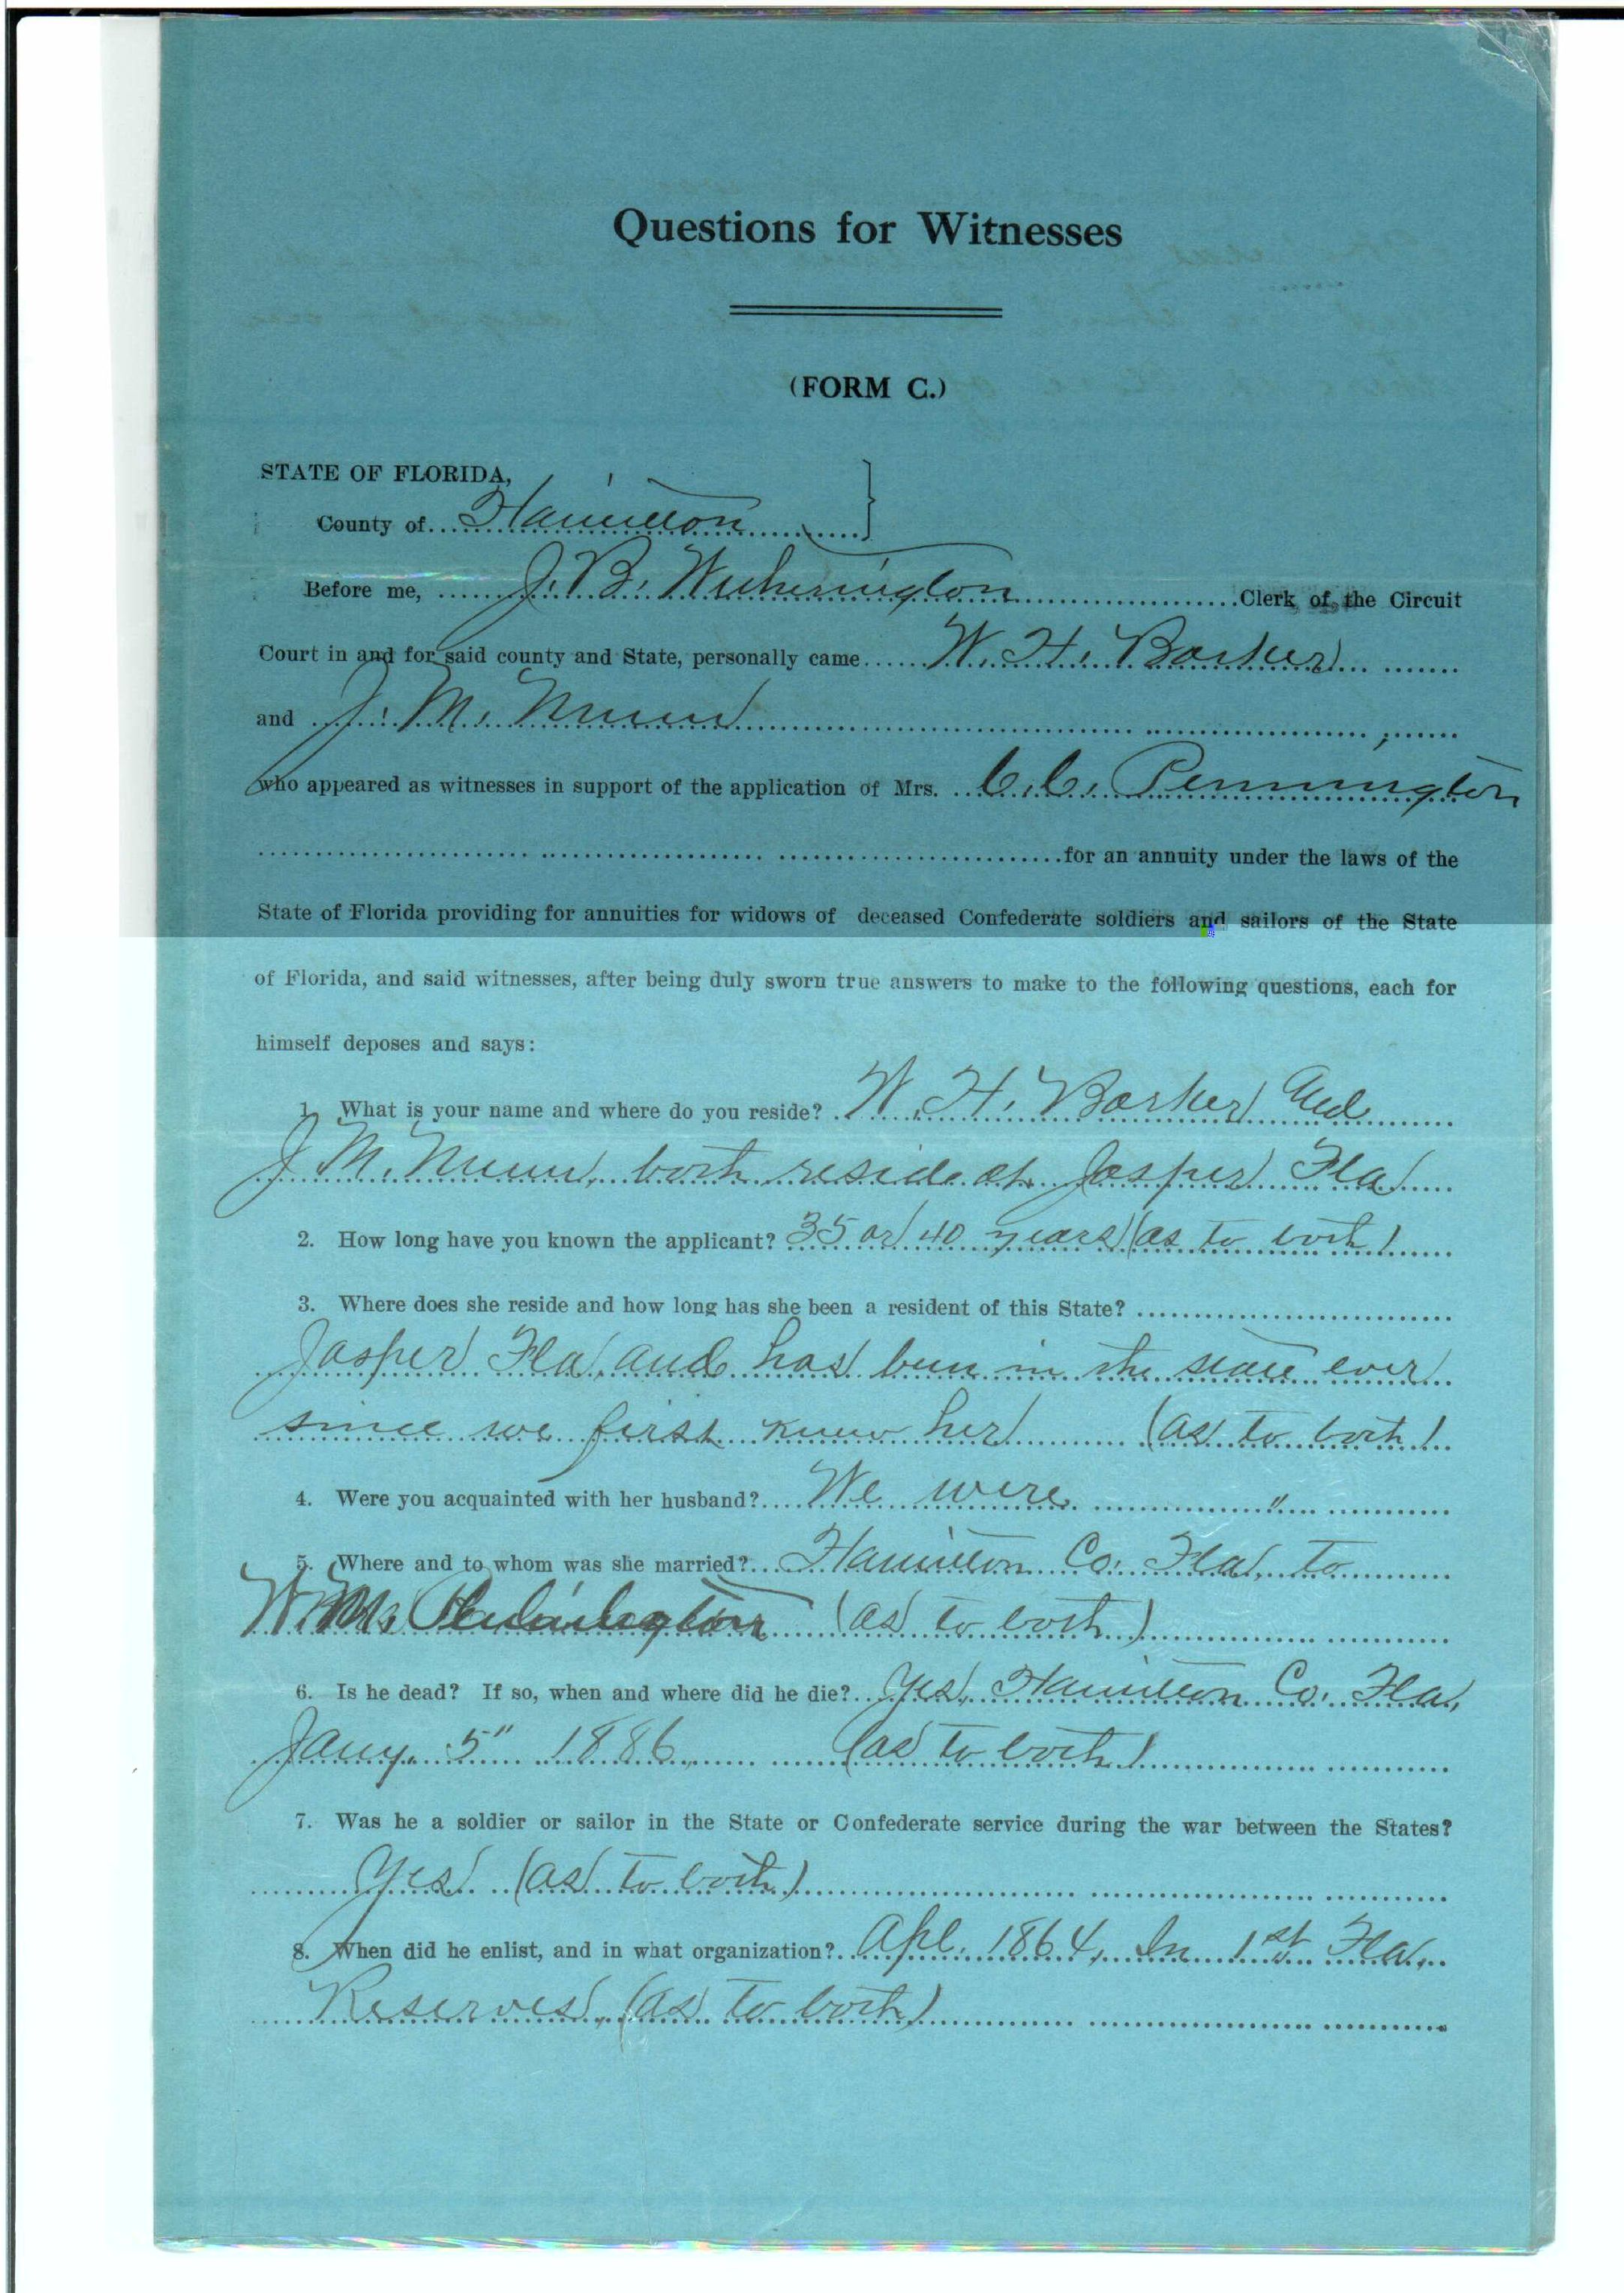 Questions for Witnesses
(FORM C.)
STATE OF FLORIDA,
County of Hamilton
Before me, J. B. Witherington Clerk of the Circuit
Court in and for said county and State, personally came W. H. Barker
and J. M. Nunn ;
who appeared as witnesses in support of the application of Mrs. C. C. Pennington
for an annuity under the laws of the
State of Florida providing for annuities for widows of deceased Confederate soldiers and sailors of the State
of Florida, and said witnesses, after being duly sworn true answers to make to the following questions, each for
himself deposes and says:
1. What is your name and where do you reside? W. H. Barker and
J. M. Nunn, both reside at Jasper Fla
2. How long have you known the applicant? 35 or 40 years (as to both)
3. Where does she reside and how long has she been a resident of this State?
Jasper Fla, and has been in the state ever
since we first knew her (as to both)
4. Were you acquainted with her husband? We were "
5. Where and to whom was she married? Hamilton Co. Fla, to
W. M. Pennington (as to both)
6. Is he dead? If so, when and where did he die? Yes, Hamilton Co. Fla,
Jany. 5" 1886, (as to both)
7. Was he a soldier or sailor in the State or Confederate service during the war between the States?
Yes (as to both)
8. When did he enlist, and in what organization? Apl. 1864, In 1st Fla,
Reserves, (as to both)